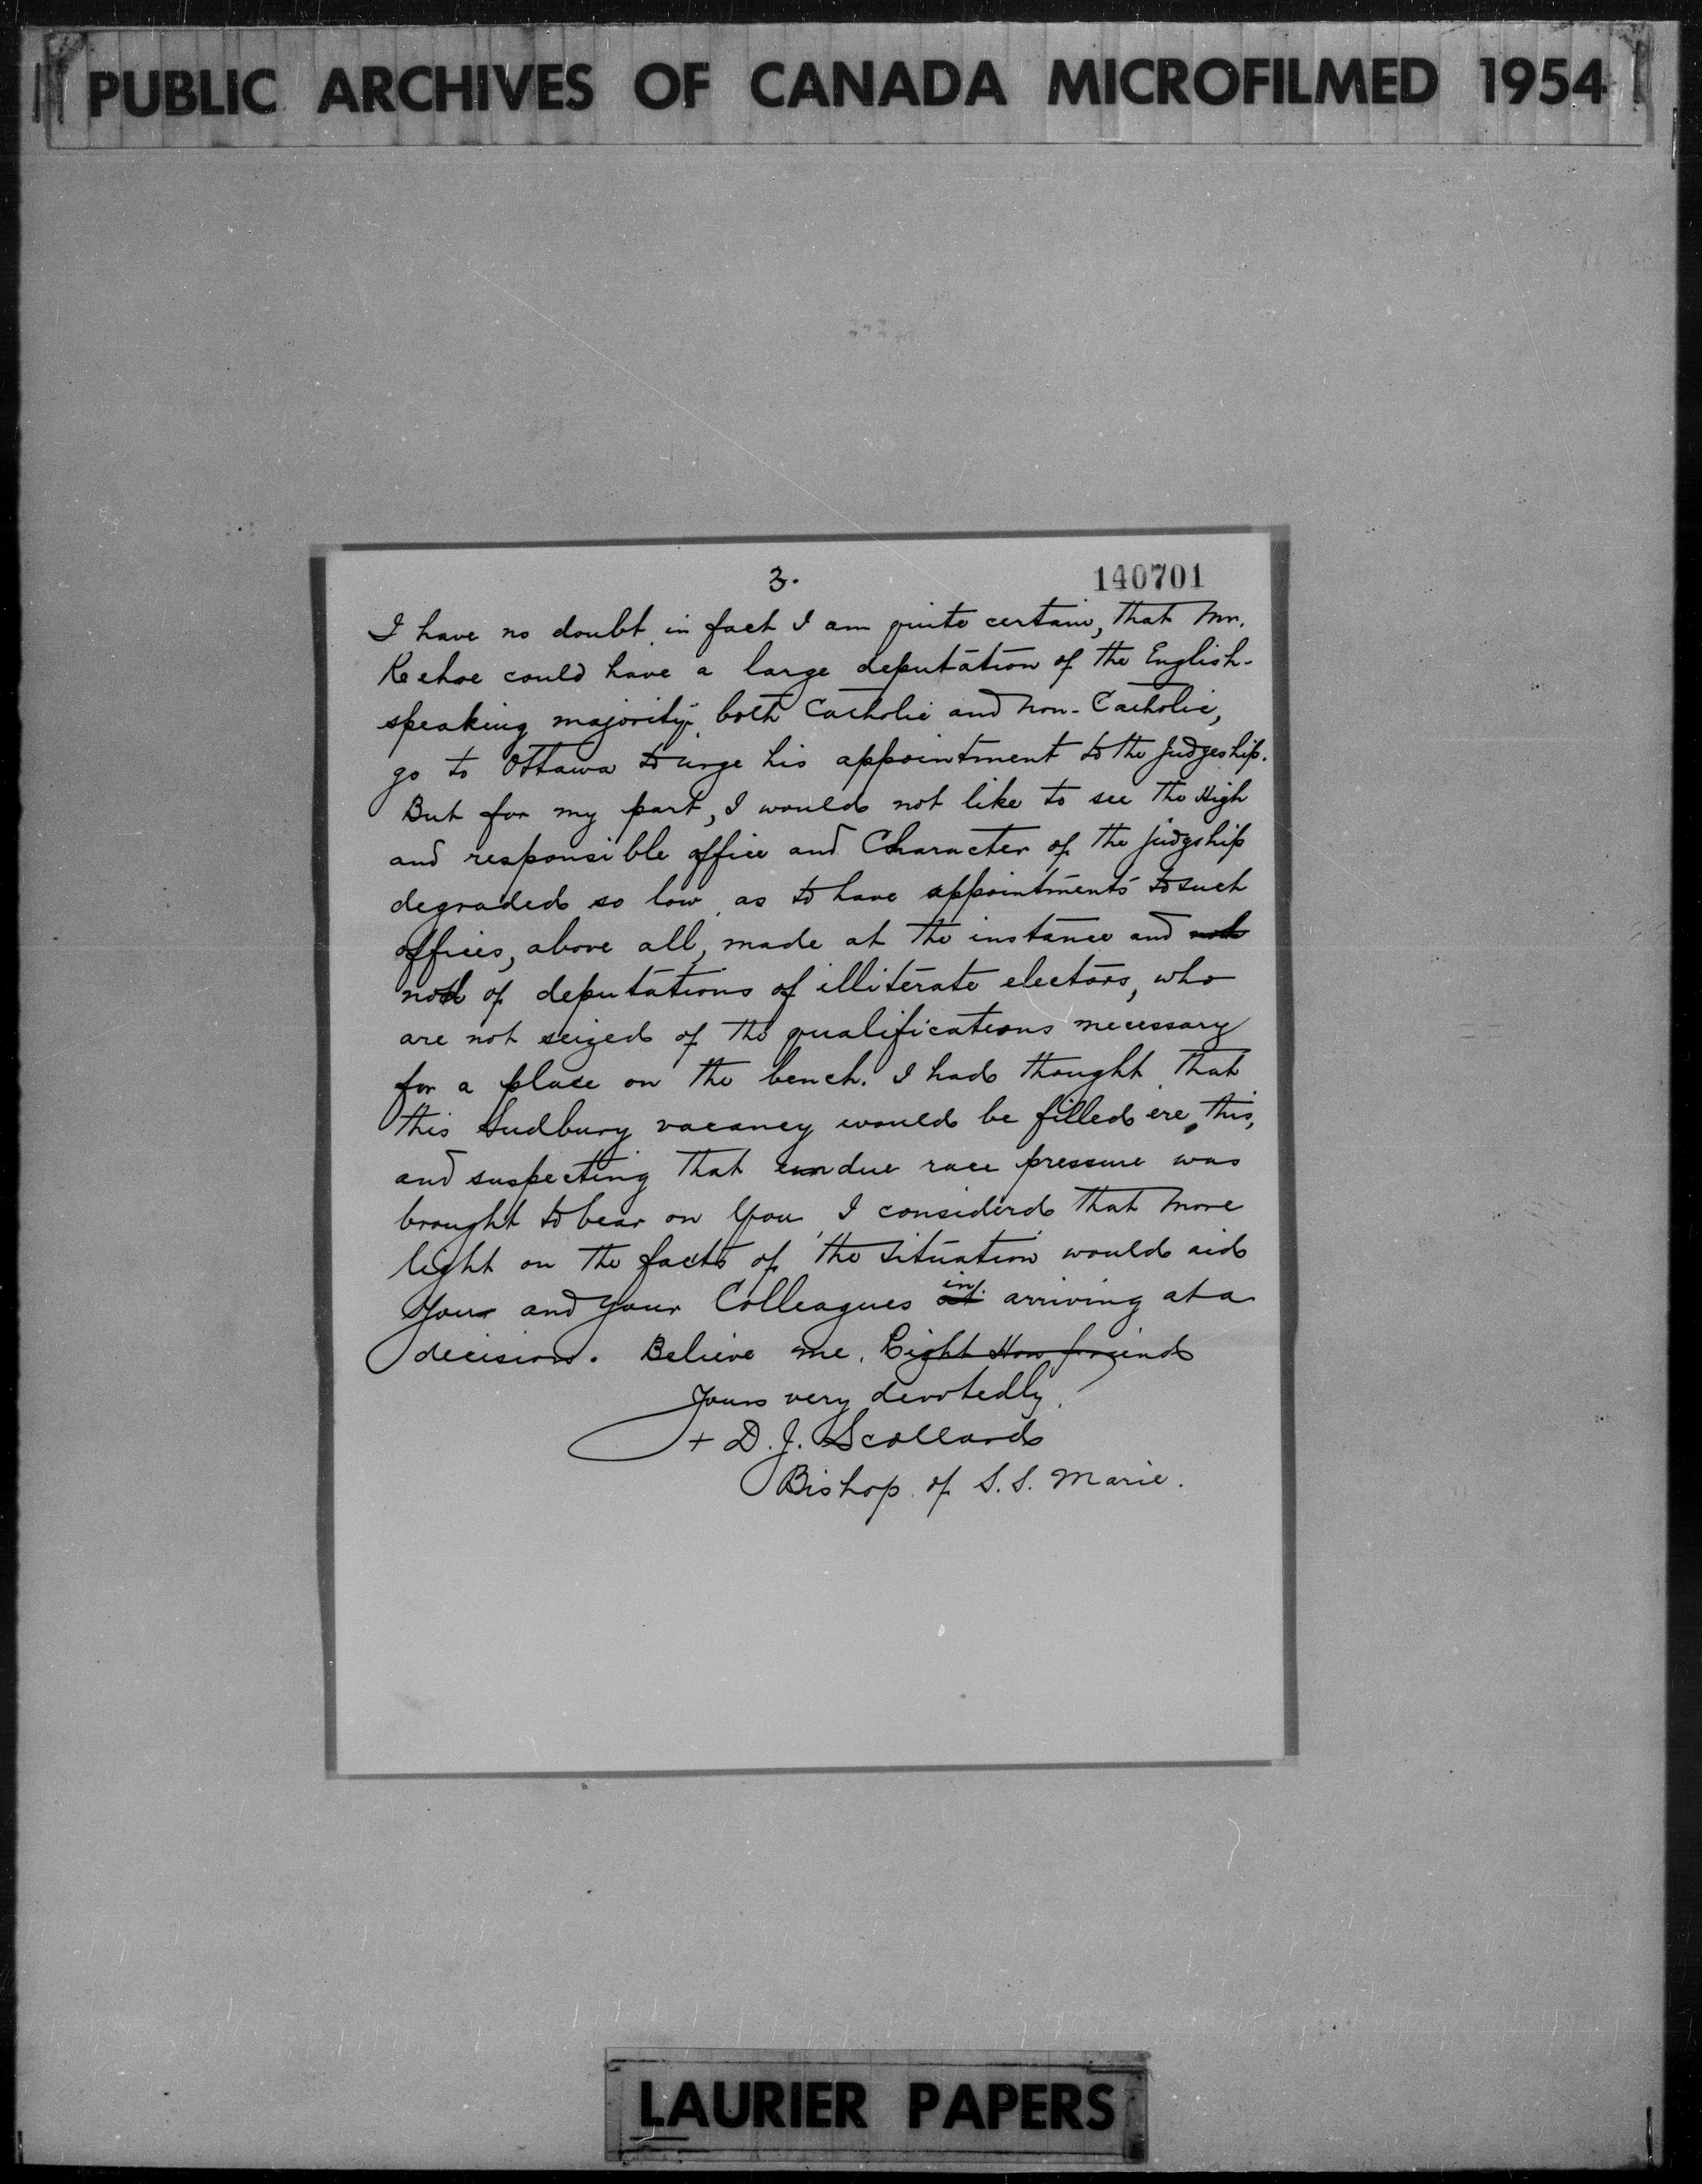 PUBLIC ARCHIVES OF CANADA MICROFILMED 1954
3.
140701
I have no doubt, in fact I am quite certain, that Mr.
Keehoe could have a large deputation of the English-
speaking majority, both Catholic and non-Catholic,
go to Ottawa to urge his appointment to the Judgeship.
But for my part, I would not like to see the High
and responsible office and Character of the judgship
degraded so low, as to have appointments to such
offices, above all, made at the instance and
nod of deputations of illiterate electors, who
are not seized of the qualifications necessary
for a place on the bench. I had thought that
this Sudbury vacancy would be filled ere this,
and suspecting that undue race pressure was
brought to bear on You, I considerd that more
light on the facts of the situation would aid
You and your Colleagues in arriving at a
decision. Believe me, Right Hon friend
Yours very devotedly,
+ D. J. Scollard
Bishop of S. S. Marie.
LAURIER PAPERS